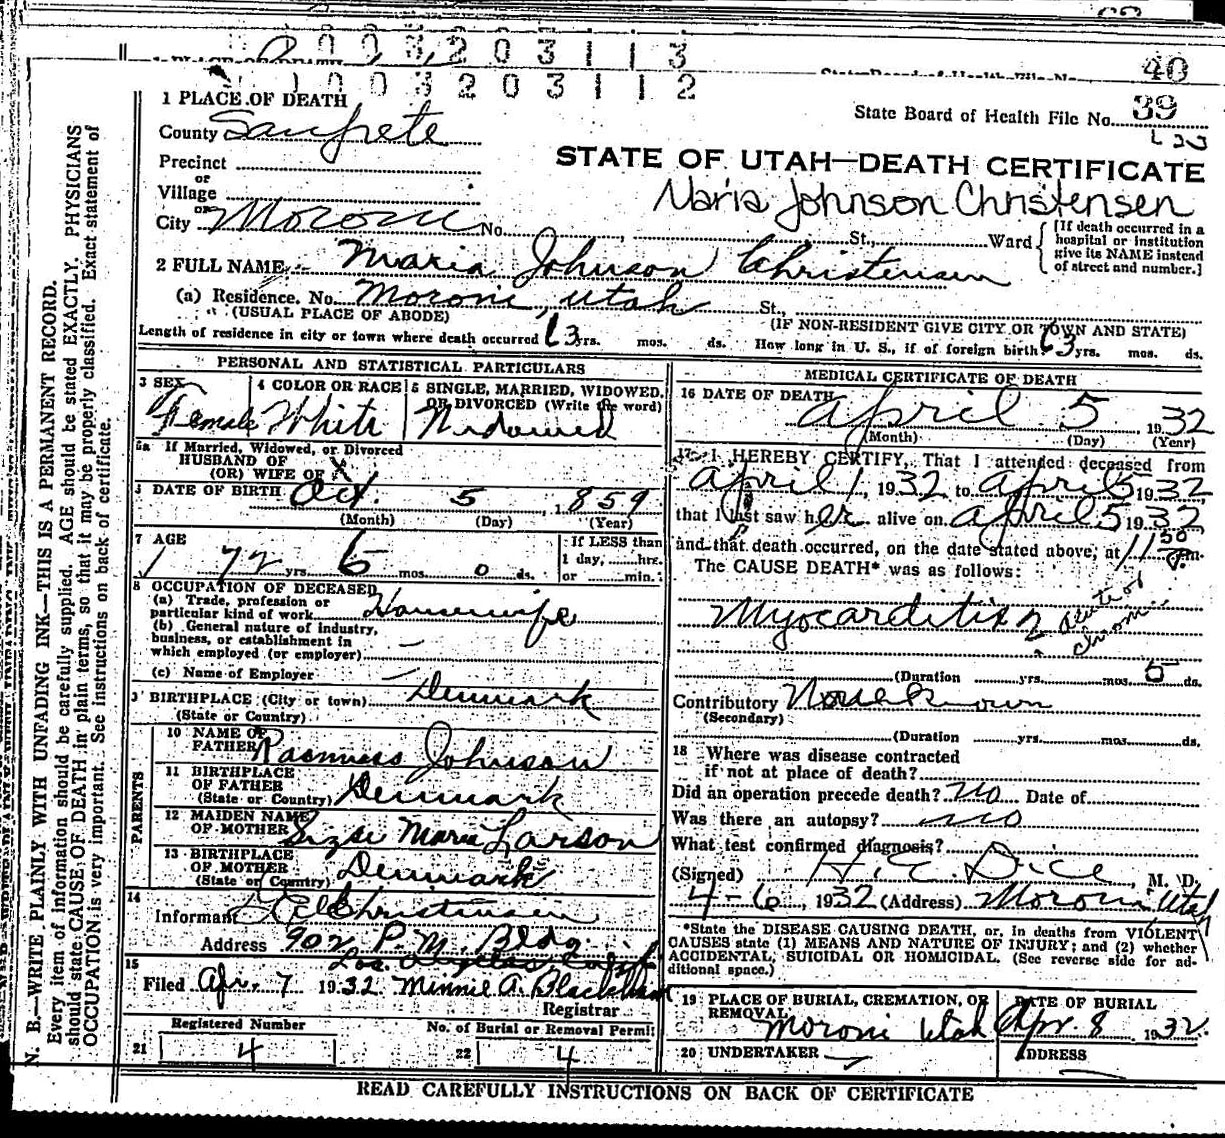 003203113
1003203112
40
1 PLACE OF DEATH
State Board of Health File No. 39
County Sanpete
STATE OF UTAH—DEATH CERTIFICATE
Precinct
or
Village
Maria Johnson Christensen
or
City Moroni No. St., Ward
[If death occurred in a
hospital or institution
give its NAME instead
of street and number.]
2 FULL NAME Maria Johnson Christensen
(a) Residence. No. Moroni, Utah St.,
(USUAL PLACE OF ABODE) (IF NON-RESIDENT GIVE CITY OR TOWN AND STATE)
Length of residence in city or town where death occurred 63 yrs. mos. ds. How long in U. S., if of foreign birth 63 yrs. mos. ds.
PERSONAL AND STATISTICAL PARTICULARS
3 SEX
Female
4 COLOR OR RACE
White
5 SINGLE, MARRIED, WIDOWED,
OR DIVORCED (Write the word)
Widowed
5a If Married, Widowed, or Divorced
HUSBAND OF
(OR) WIFE OF X
DATE OF BIRTH Oct. 5, 1859
(Month) (Day) (Year)
7 AGE
72 yrs. 6 mos. 0 ds.
If LESS than
1 day, hrs.
or min.
8 OCCUPATION OF DECEASED
(a) Trade, profession or
particular kind of work Housewife
(b) General nature of industry,
business, or establishment in
which employed (or employer)
(c) Name of Employer
9 BIRTHPLACE (City or town) Denmark
(State or Country)
PARENTS
10 NAME OF
FATHER Rasmuss Johnson
11 BIRTHPLACE
OF FATHER
(State or Country) Denmark
12 MAIDEN NAME
OF MOTHER Maria Larson
13 BIRTHPLACE
OF MOTHER
(State or Country) Denmark
14
Informant Christensen
Address 902 P. M. Bldg.
Los Angeles Calif
15
Filed Apr. 7 1932 Minnie A. Blackham
Registrar
Registered Number
21 4
No. of Burial or Removal Permit
22 4
MEDICAL CERTIFICATE OF DEATH
16 DATE OF DEATH
April 5 1932
(Month) (Day) (Year)
17 I HEREBY CERTIFY, That I attended deceased from
April 1, 1932 to April 5 1932
that I last saw her alive on April 5 1932
and that death occurred, on the date stated above, at 11 30 P.m.
The CAUSE DEATH* was as follows:
Myocarditis ? acute or
chronic
(Duration yrs. mos. 5 ds.
Contributory None Known
(Secondary)
(Duration yrs. mos. ds.
18 Where was disease contracted
if not at place of death?
Did an operation precede death? no Date of
Was there an autopsy? no
What test confirmed diagnosis?
(Signed) H. E. Dice, M. D.
4-6, 1932 (Address) Moroni Utah
*State the DISEASE CAUSING DEATH, or, in deaths from VIOLENT
CAUSES state (1) MEANS AND NATURE OF INJURY; and (2) whether
ACCIDENTAL, SUICIDAL OR HOMICIDAL. (See reverse side for ad-
ditional space.)
19 PLACE OF BURIAL, CREMATION, OR
REMOVAL
Moroni Utah
DATE OF BURIAL
Apr. 8 1932.
20 UNDERTAKER
ADDRESS
READ CAREFULLY INSTRUCTIONS ON BACK OF CERTIFICATE
N. B.—WRITE PLAINLY WITH UNFADING INK—THIS IS A PERMANENT RECORD.
Every item of information should be carefully supplied. AGE should be stated EXACTLY. PHYSICIANS
should state CAUSE OF DEATH in plain terms, so that it may be properly classified. Exact statement of
OCCUPATION is very important. See instructions on back of certificate.